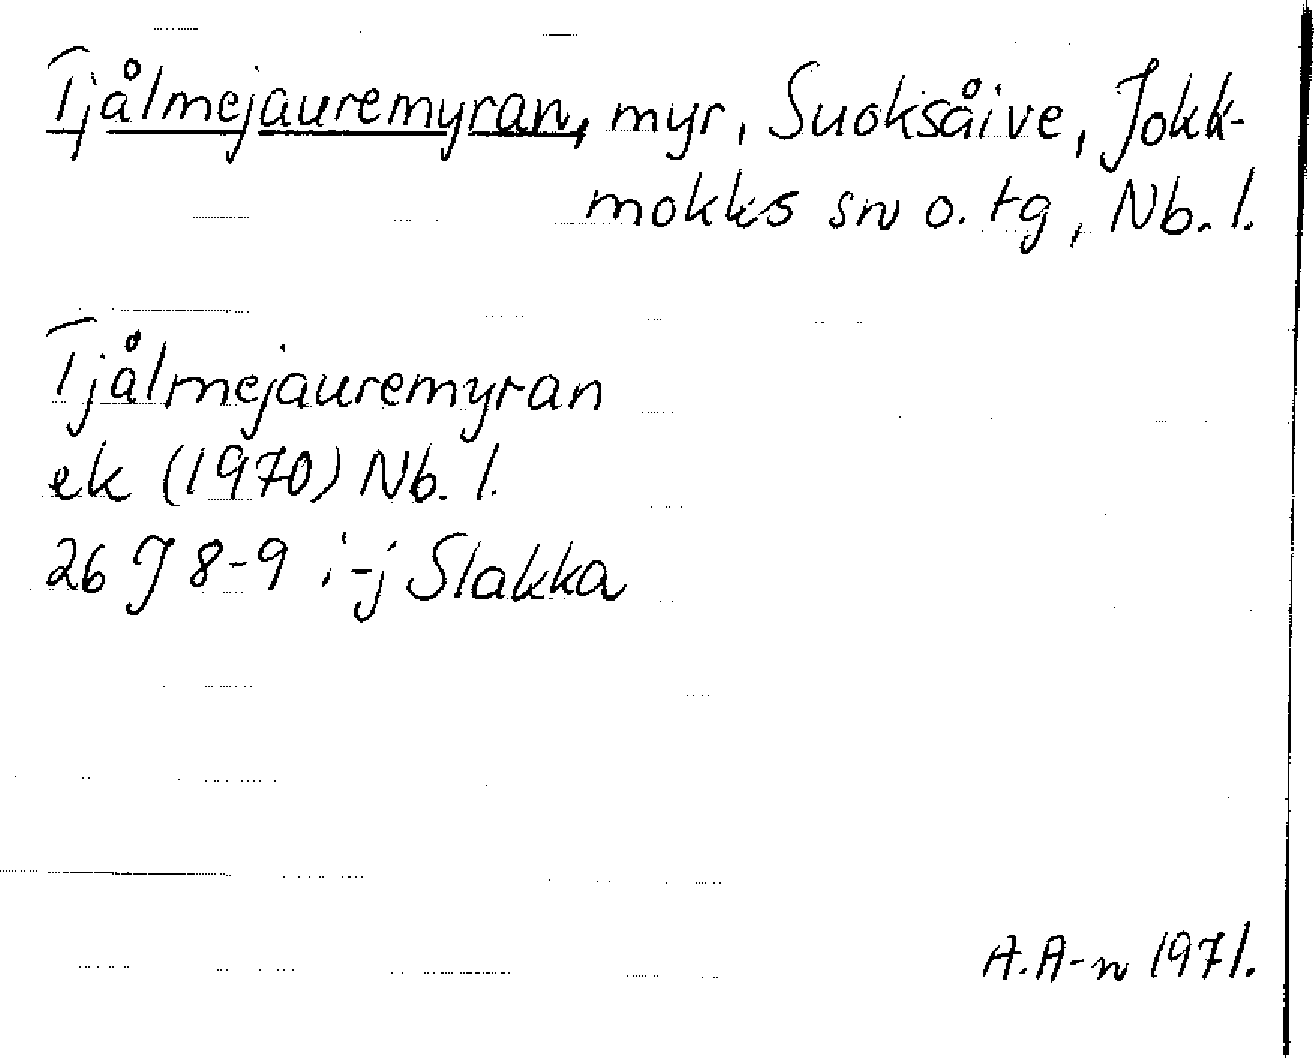 Tjålmejauremyran, myr, Suoksåive, Jokk-
mokks sn o. tg, Nb. l.
Tjålmejauremyran
ek (1970) Nb. l.
26 J 8-9 i-j Slakka
A.A-n 1971.